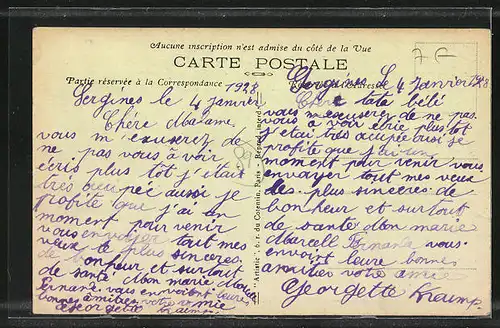 Aucune inscription n'est admise du côté de la Vue
CARTE POSTALE
Partie réservée à la Correspondance
7 G
Sergines le 4 janvier 1928
Chère Madame
vous m'excuserez de
ne pas vous à voir
écris plus tôt j'étais
très occupée aussi je
profite que j'ai un
moment pour venir
vous envoyer tout mes
veux le plus sinceres
de bonheur et surtout
de santé Mon marie
Fernande vous envoient leures
bonnes amitiées votre amie
Georgette Kaimp
"Artistic" 6, r. du Corentin, Paris - Reprod. interd.
Sergines le 4 Janvier 1928
Chère tata bébé
vous m'excuserez de ne pas
vous à voir écrie plus tôt
j'étai très occupée aussi je
profite que j'ai un
moment pour venir vous
envoyer tout mes veux
les plus sinceres de
bonheur et surtout
de santé Mon marie
Marcell Fernande vous
envoirt leure bonnes
amitiées votre amie
Georgette Kaimp